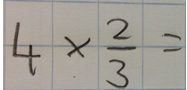 4 × 2/3 =